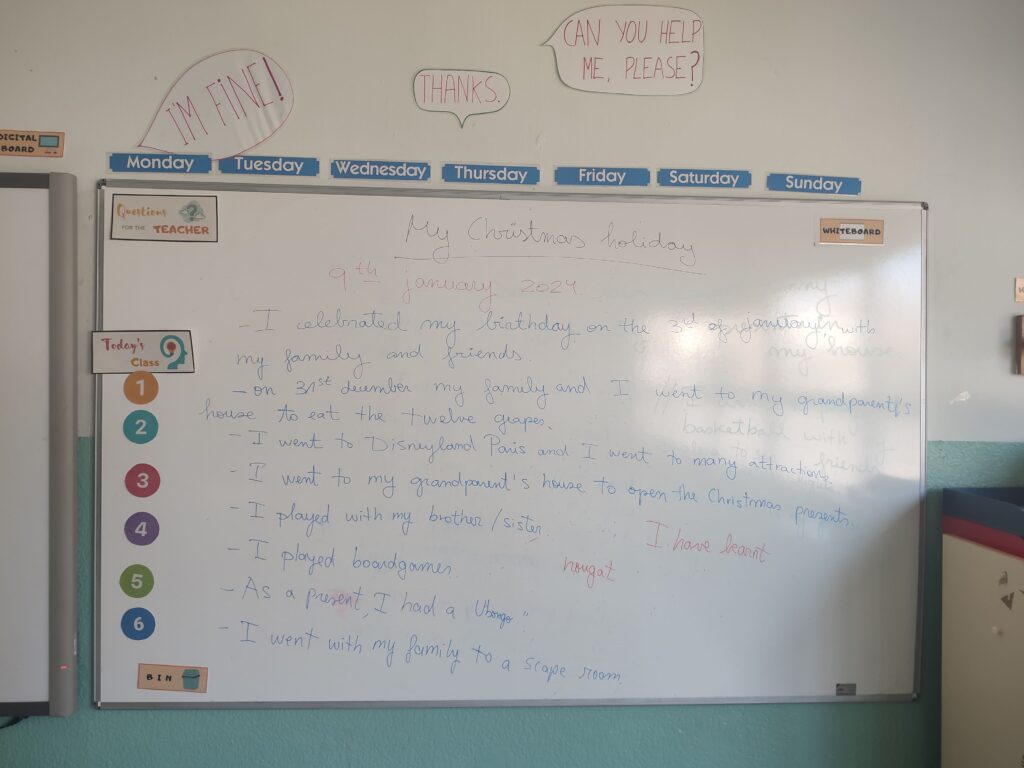 CAN YOU HELP
ME, PLEASE?
I'M FINE!
THANKS.
DIGITAL
BOARD
Monday
Tuesday
Wednesday
Thursday
Friday
Saturday
Sunday
Questions
FOR THE TEACHER
WHITEBOARD
My Christmas holiday
9th january 2024
- I celebrated my birthday on the 3rd of january with
my family and friends.
my house
Today's
Class
- on 31st december my family and I went to my grandparent's
house to eat the twelve grapes.
basketball with
friends
- I went to Disneyland Paris and I went to many attractions
- I went to my grandparent's house to open the Christmas presents.
- I played with my brother/sister.
I have learnt
- I played boardgames.
nougat
- As a present, I had a "Ubongo"
- I went with my family to a scape room.
1
2
3
4
5
6
BIN